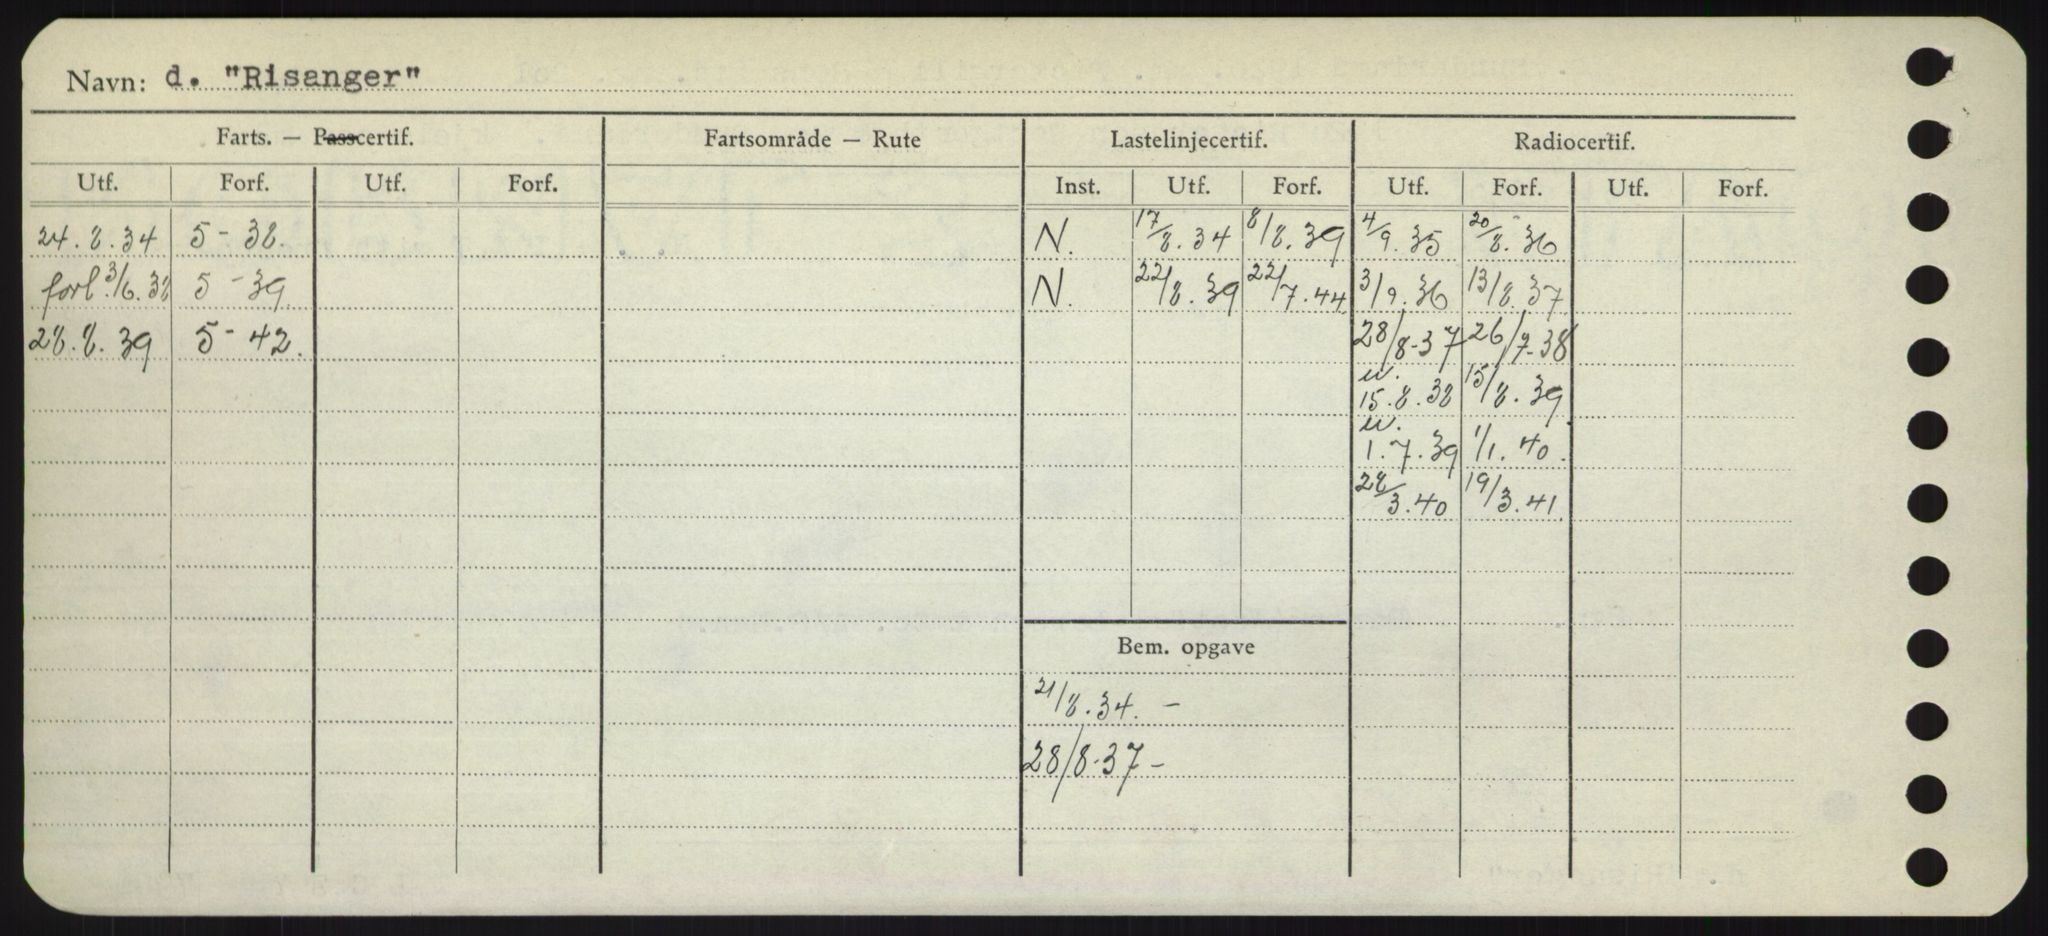 Navn: d. "Risanger"
Farts. — Passcertif. Fartsområde — Rute Lastelinjecertif. Radiocertif.
Utf. Forf. Utf. Forf. Inst. Utf. Forf. Utf. Forf. Utf. Forf.
24.8.34 5 - 38. N. 17/8.34 8/8.39 4/9.35 20/8.36
forl. 3/6.38 5 - 39. N. 22/8.39 22/7.44 3/9.36 13/8.37
28.8.39 5 - 42. 28/8-37 26/7-38
u.
15.8.38 15/8.39
u.
1.7.39 1/1.40.
28/3.40 19/3.41
Bem. opgave
21/8.34. -
28/8-37 -